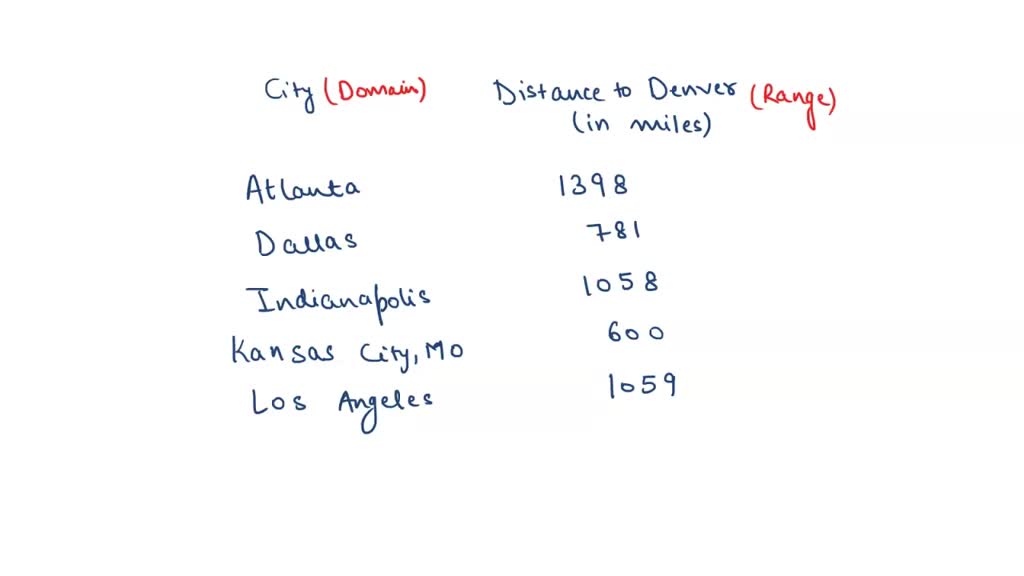 City (Domain) Distance to Denver (Range)
(in miles)
Atlanta 1398
Dallas 781
Indianapolis 1058
Kansas City, MO 600
Los Angeles 1059